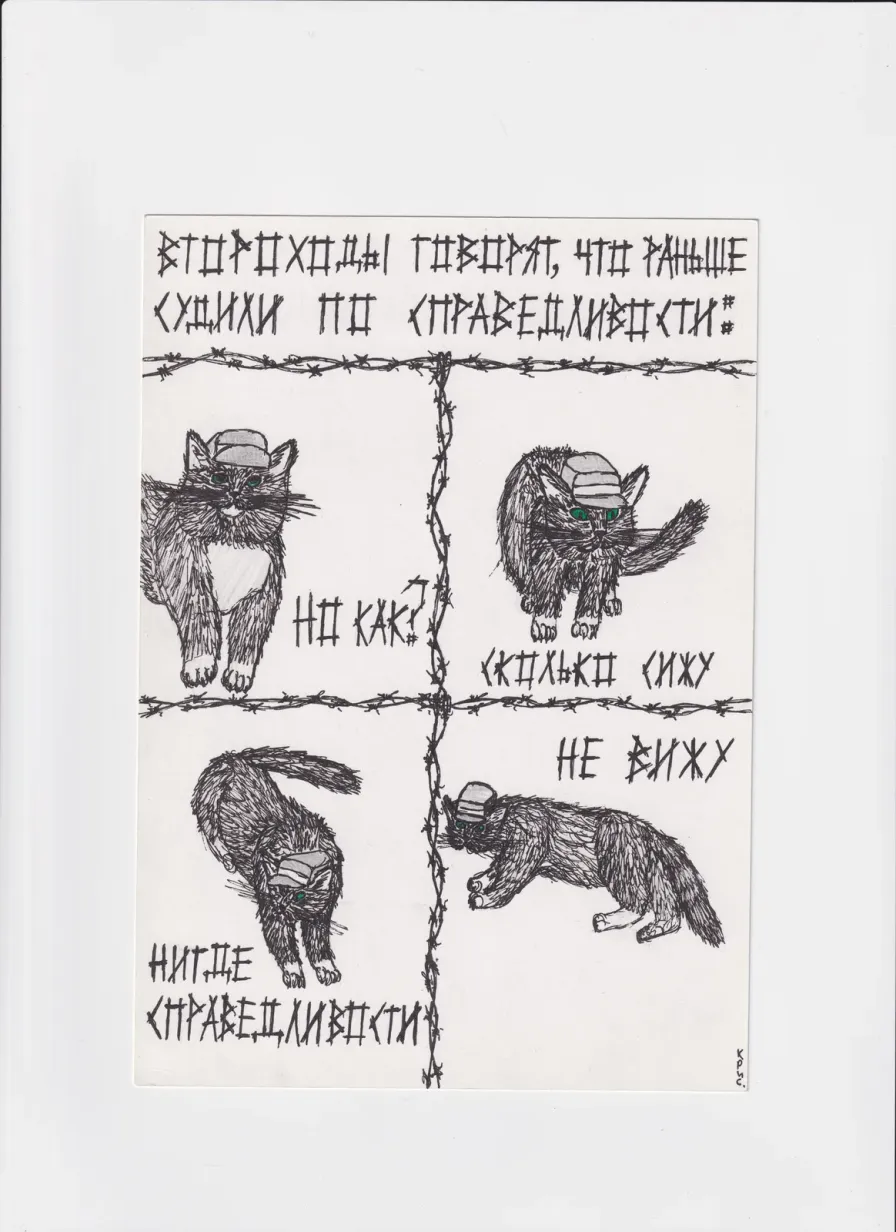 ВТОРОХОДЫ ГОВОРЯТ, ЧТО РАНЬШЕ
СУДИЛИ ПО СПРАВЕДЛИВОСТИ:
НО КАК?
СКОЛЬКО СИЖУ
НИГДЕ
СПРАВЕДЛИВОСТИ
НЕ ВИЖУ
КРыС.